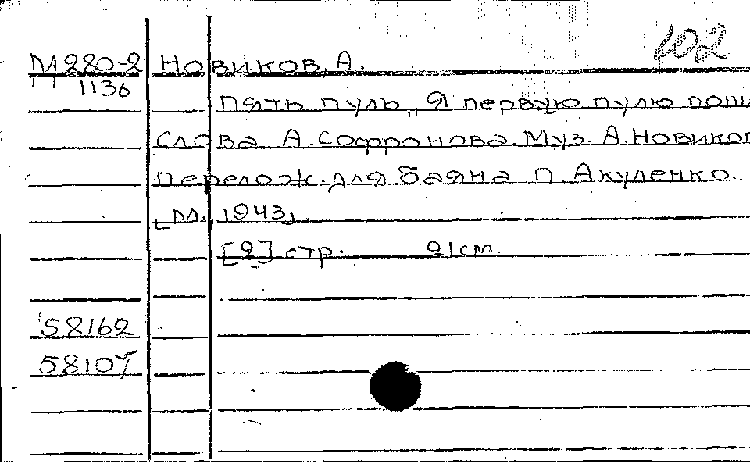 402
М 280-2 Новиков, А.
1136
Пять пуль „Я первую пулю
Слова А. Софронова. Муз. А. Новикова
Перелож. для баяна П. Акуленко.
[М., 1943]
[2] стр. 21 см.
58162
58107